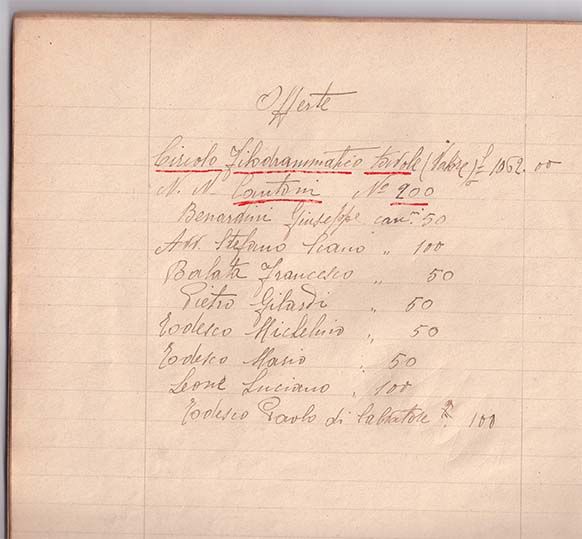 Offerte
Circolo Filodrammatico tavole (Valore) £ 1062.00
N. N. Cantoni No 200
Benardini Giuseppe can: 50
Avv. Stefano Scano „ 100
Balata Francesco „ 50
Pietro Gilardi „ 50
Todesco Michelino „ 50
Todesco Mario „ 50
Leone Luciano „ 100
Todesco Paolo di Salvatore 100